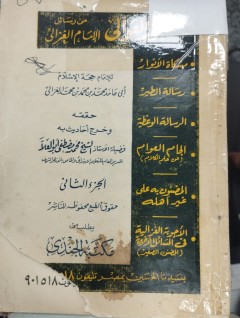 من رسائل
الإمام الغزالي
للإمام حجة الإسلام
أبي حامد محمد بن محمد بن محمد الغزالي
حققه
وخرج أحاديثه
فضيلة الأستاذ الشيخ محمد مصطفى أبو العلا
الجزء الثاني
حقوق الطبع محفوظة للناشر
يطلب من
مكتبة الجندي
بسيدنا الحسين بمصر تليفون ٩٠١٥١٨
مشكاة الأنوار
رسالة الطير
الرسالة الوعظية
إلجام العوام
عن علم الكلام
المضنون به على
غير أهله
الأجوبة الغزالية
في المسائل الأخروية